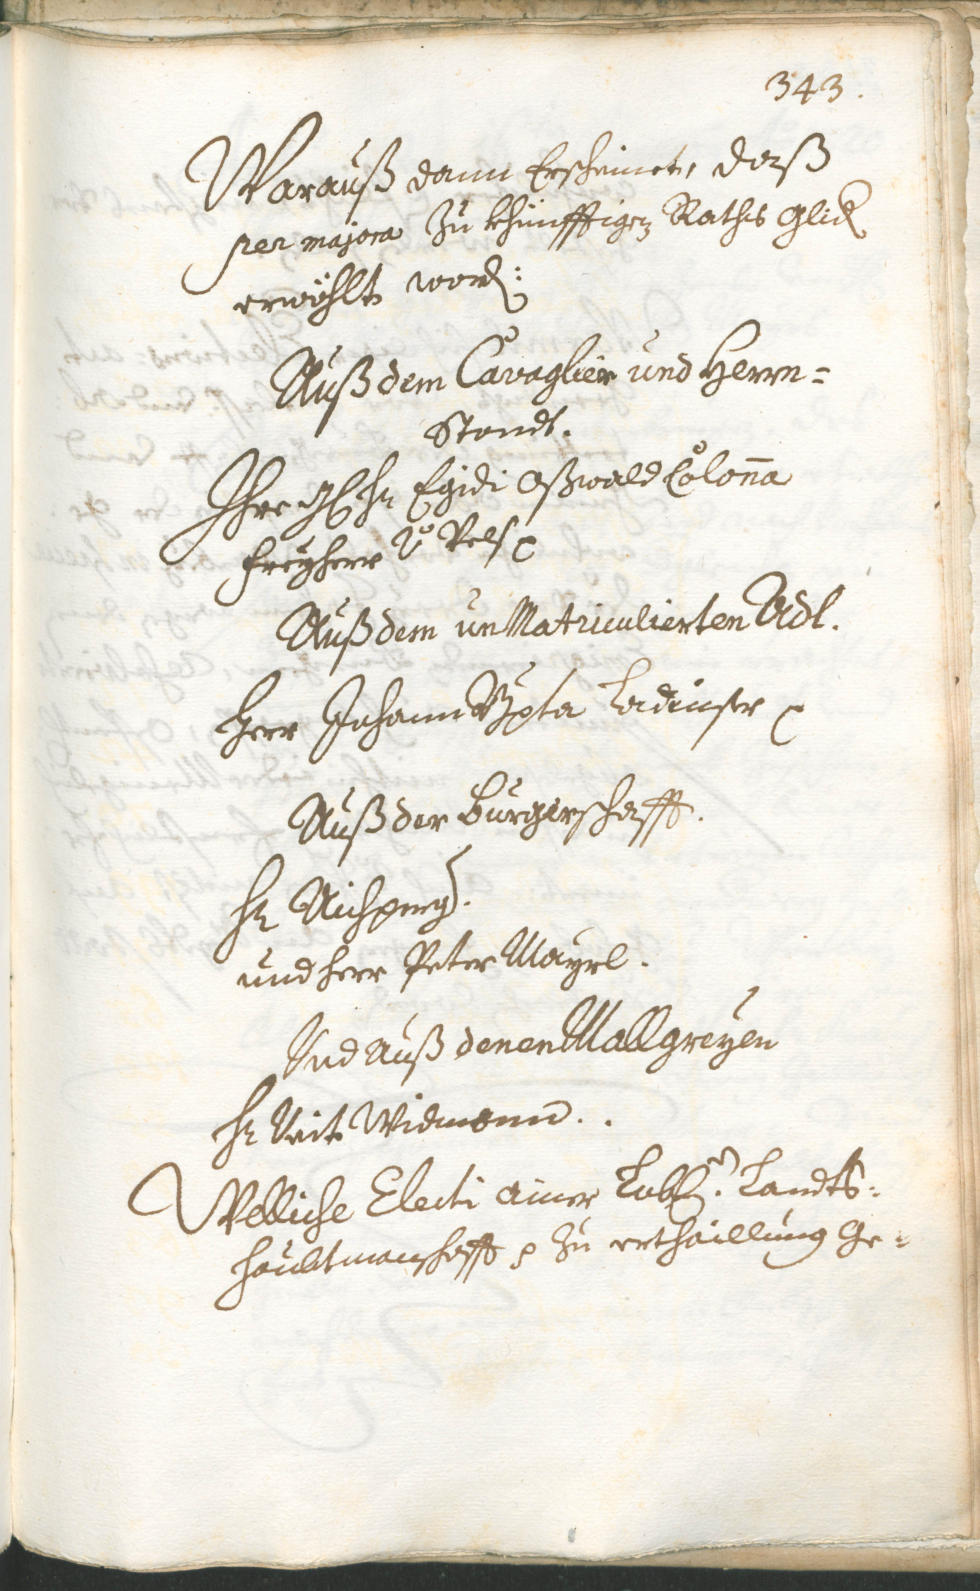 343.
Warauß dann Erscheinet, daß
per majora zu khünfftigen Raths Glid
erwöhlt word:
Auß dem Cavaglier und Herrn=
Standt.
Ihro Hr Egidi Oßwald Colona
Freyherr v: Vels
Auß dem un Matriculierten Adl.
Herr Johann Bpta Ladinser
Auß der Burgerschafft.
Hr Aichperg.
und herr Peter Mayrl.
Und auß denen Mallgreyen
Hr Veit Widmann.
Welliche Electi ainer Lobl. Landts=
haubtmanschafft zu erthaillung Ge=